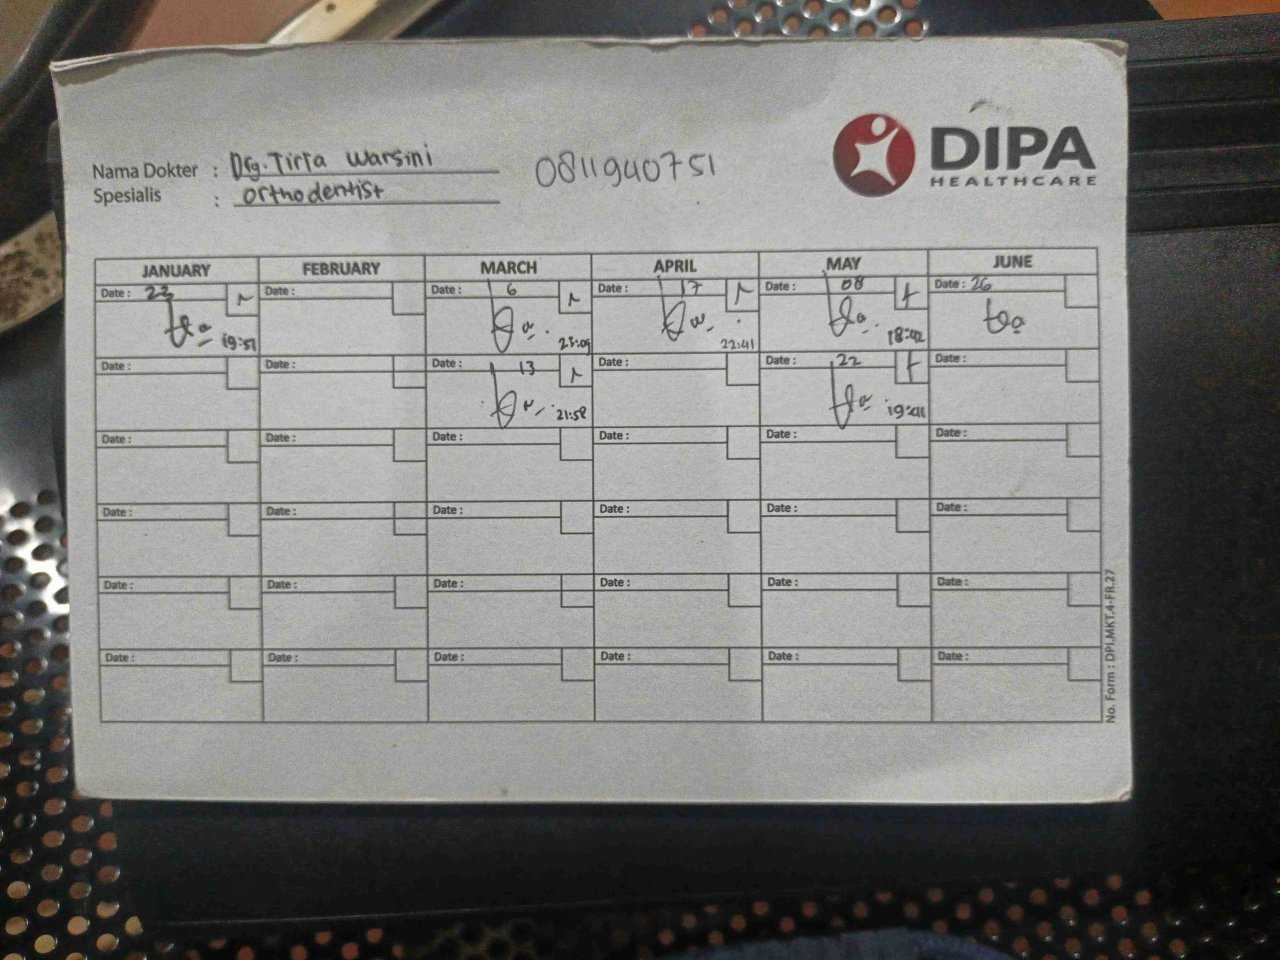 Nama Dokter : Drg. Tirta Warsini
Spesialis : Orthodentist
0811940751
DIPA
HEALTHCARE
JANUARY FEBRUARY MARCH APRIL MAY JUNE
Date : 23 Date : Date : 6 Date : 17 Date : 08 Date : 26
19:51 22:41 18:42
Date : Date : Date : 13 Date : Date : 22 Date :
21:58 19:41
Date : Date : Date : Date : Date : Date :
Date : Date : Date : Date : Date : Date :
Date : Date : Date : Date : Date : Date :
Date : Date : Date : Date : Date : Date :
No. Form : DPI.MKT.4-FR.27